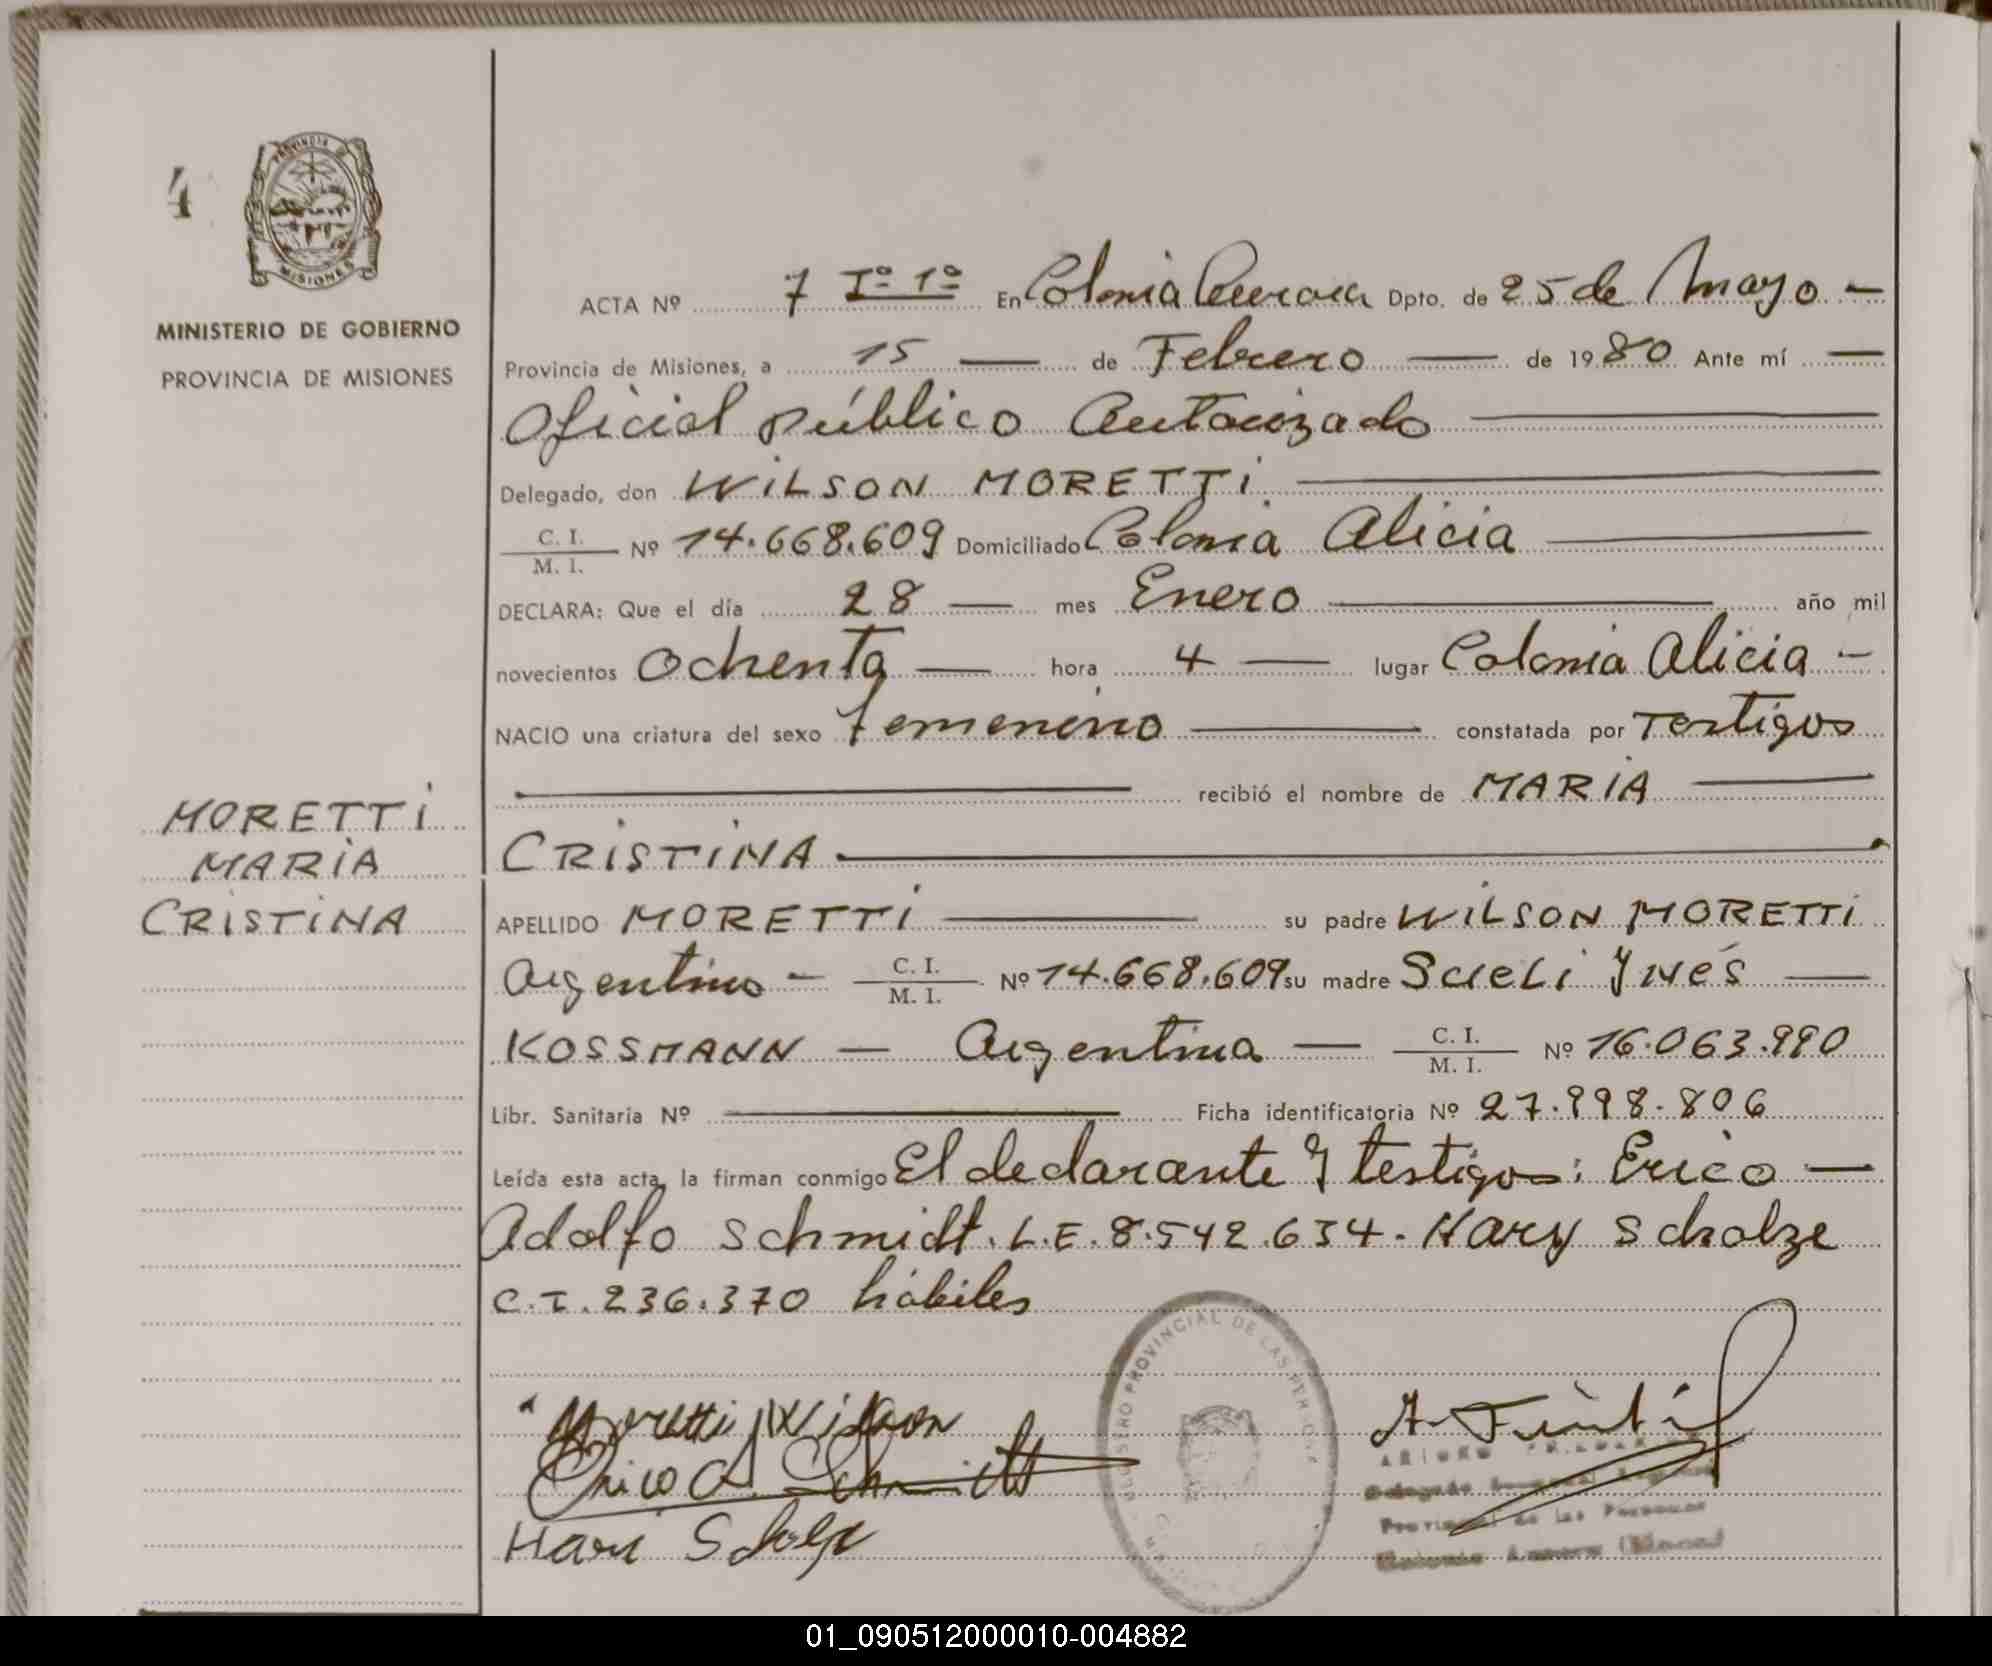 4
PROVINCIA DE
MISIONES
MINISTERIO DE GOBIERNO
PROVINCIA DE MISIONES
ACTA Nº 7 Tº 1º En Colonia Aurora Dpto. de 25 de Mayo —
Provincia de Misiones, a 15 — de Febrero — de 1980 Ante mí —
Oficial público Autorizado —
Delegado, don WILSON MORETTI —
C. I. / M. I. Nº 14.668.609 Domiciliado Colonia Alicia —
DECLARA: Que el día 28 — mes Enero — año mil
novecientos Ochenta — hora 4 — lugar Colonia Alicia —
NACIO una criatura del sexo femenino — constatada por Testigos
— recibió el nombre de MARIA —
CRISTINA —
MORETTI
MARIA
CRISTINA
APELLIDO MORETTI — su padre WILSON MORETTI
Argentino — C. I. / M. I. Nº 14.668.609 su madre SUELI YNÉS —
KOSSMANN — Argentina — C. I. / M. I. Nº 16.063.990
Libr. Sanitaria Nº — Ficha identificatoria Nº 27.998.806
Leída esta acta, la firman conmigo El declarante y testigos: Erico —
Adolfo Schmidt. L.E. 8.542.634. Hary Scholze
C.I. 236.370 hábiles
Moretti Wilson
Erico A. Schmidt
Hari Scholze
REGISTRO PROVINCIAL DE LAS PERSONAS
Provincial de las Personas
Colonia Aurora
01_090512000010-004882